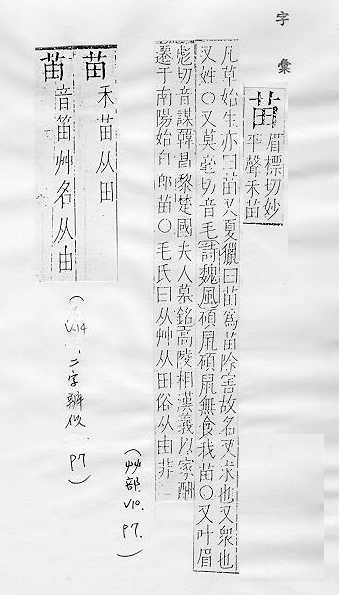 字彙
苗 眉標切妙
平聲禾苗
凡草始生亦曰苗又夏獵曰苗爲苗除害故名又求也又衆也
又姓○又莫毫切音毛詩魏風碩鼠碩鼠無食我苗○又叶眉
彪切音謀韓昌黎楚國夫人墓銘高陵相漢義以家酬
遷于南陽始自郎苗○毛氏曰从艸从田俗从由非
(艸部 V10. P7.)
苗 禾苗从田
苖 音笛艸名从由
(V.14 二字辨似、P7)